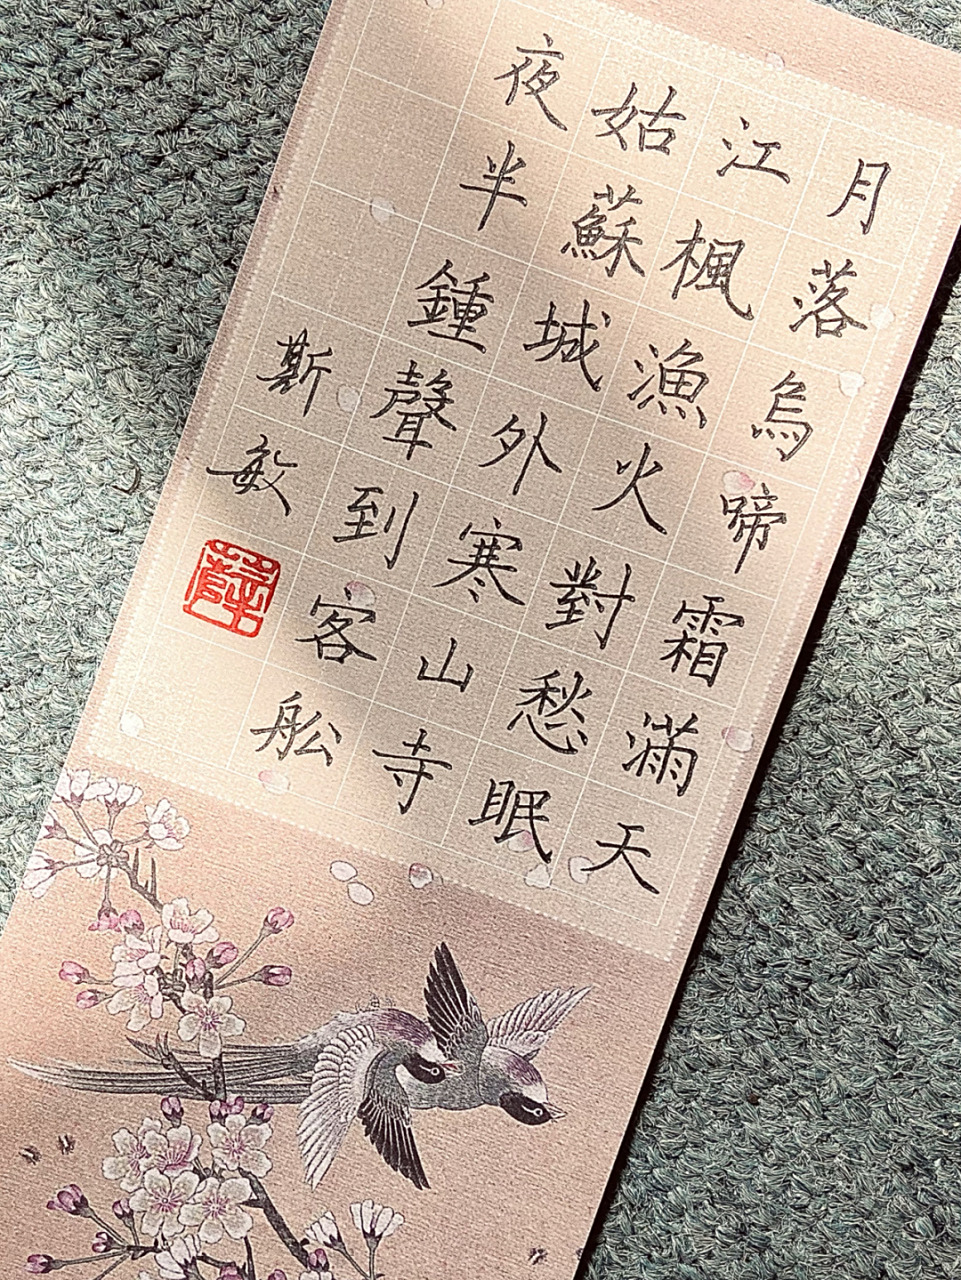 月落烏啼霜滿天
江楓漁火對愁眠
姑蘇城外寒山寺
夜半鍾聲到客舩
斯敏